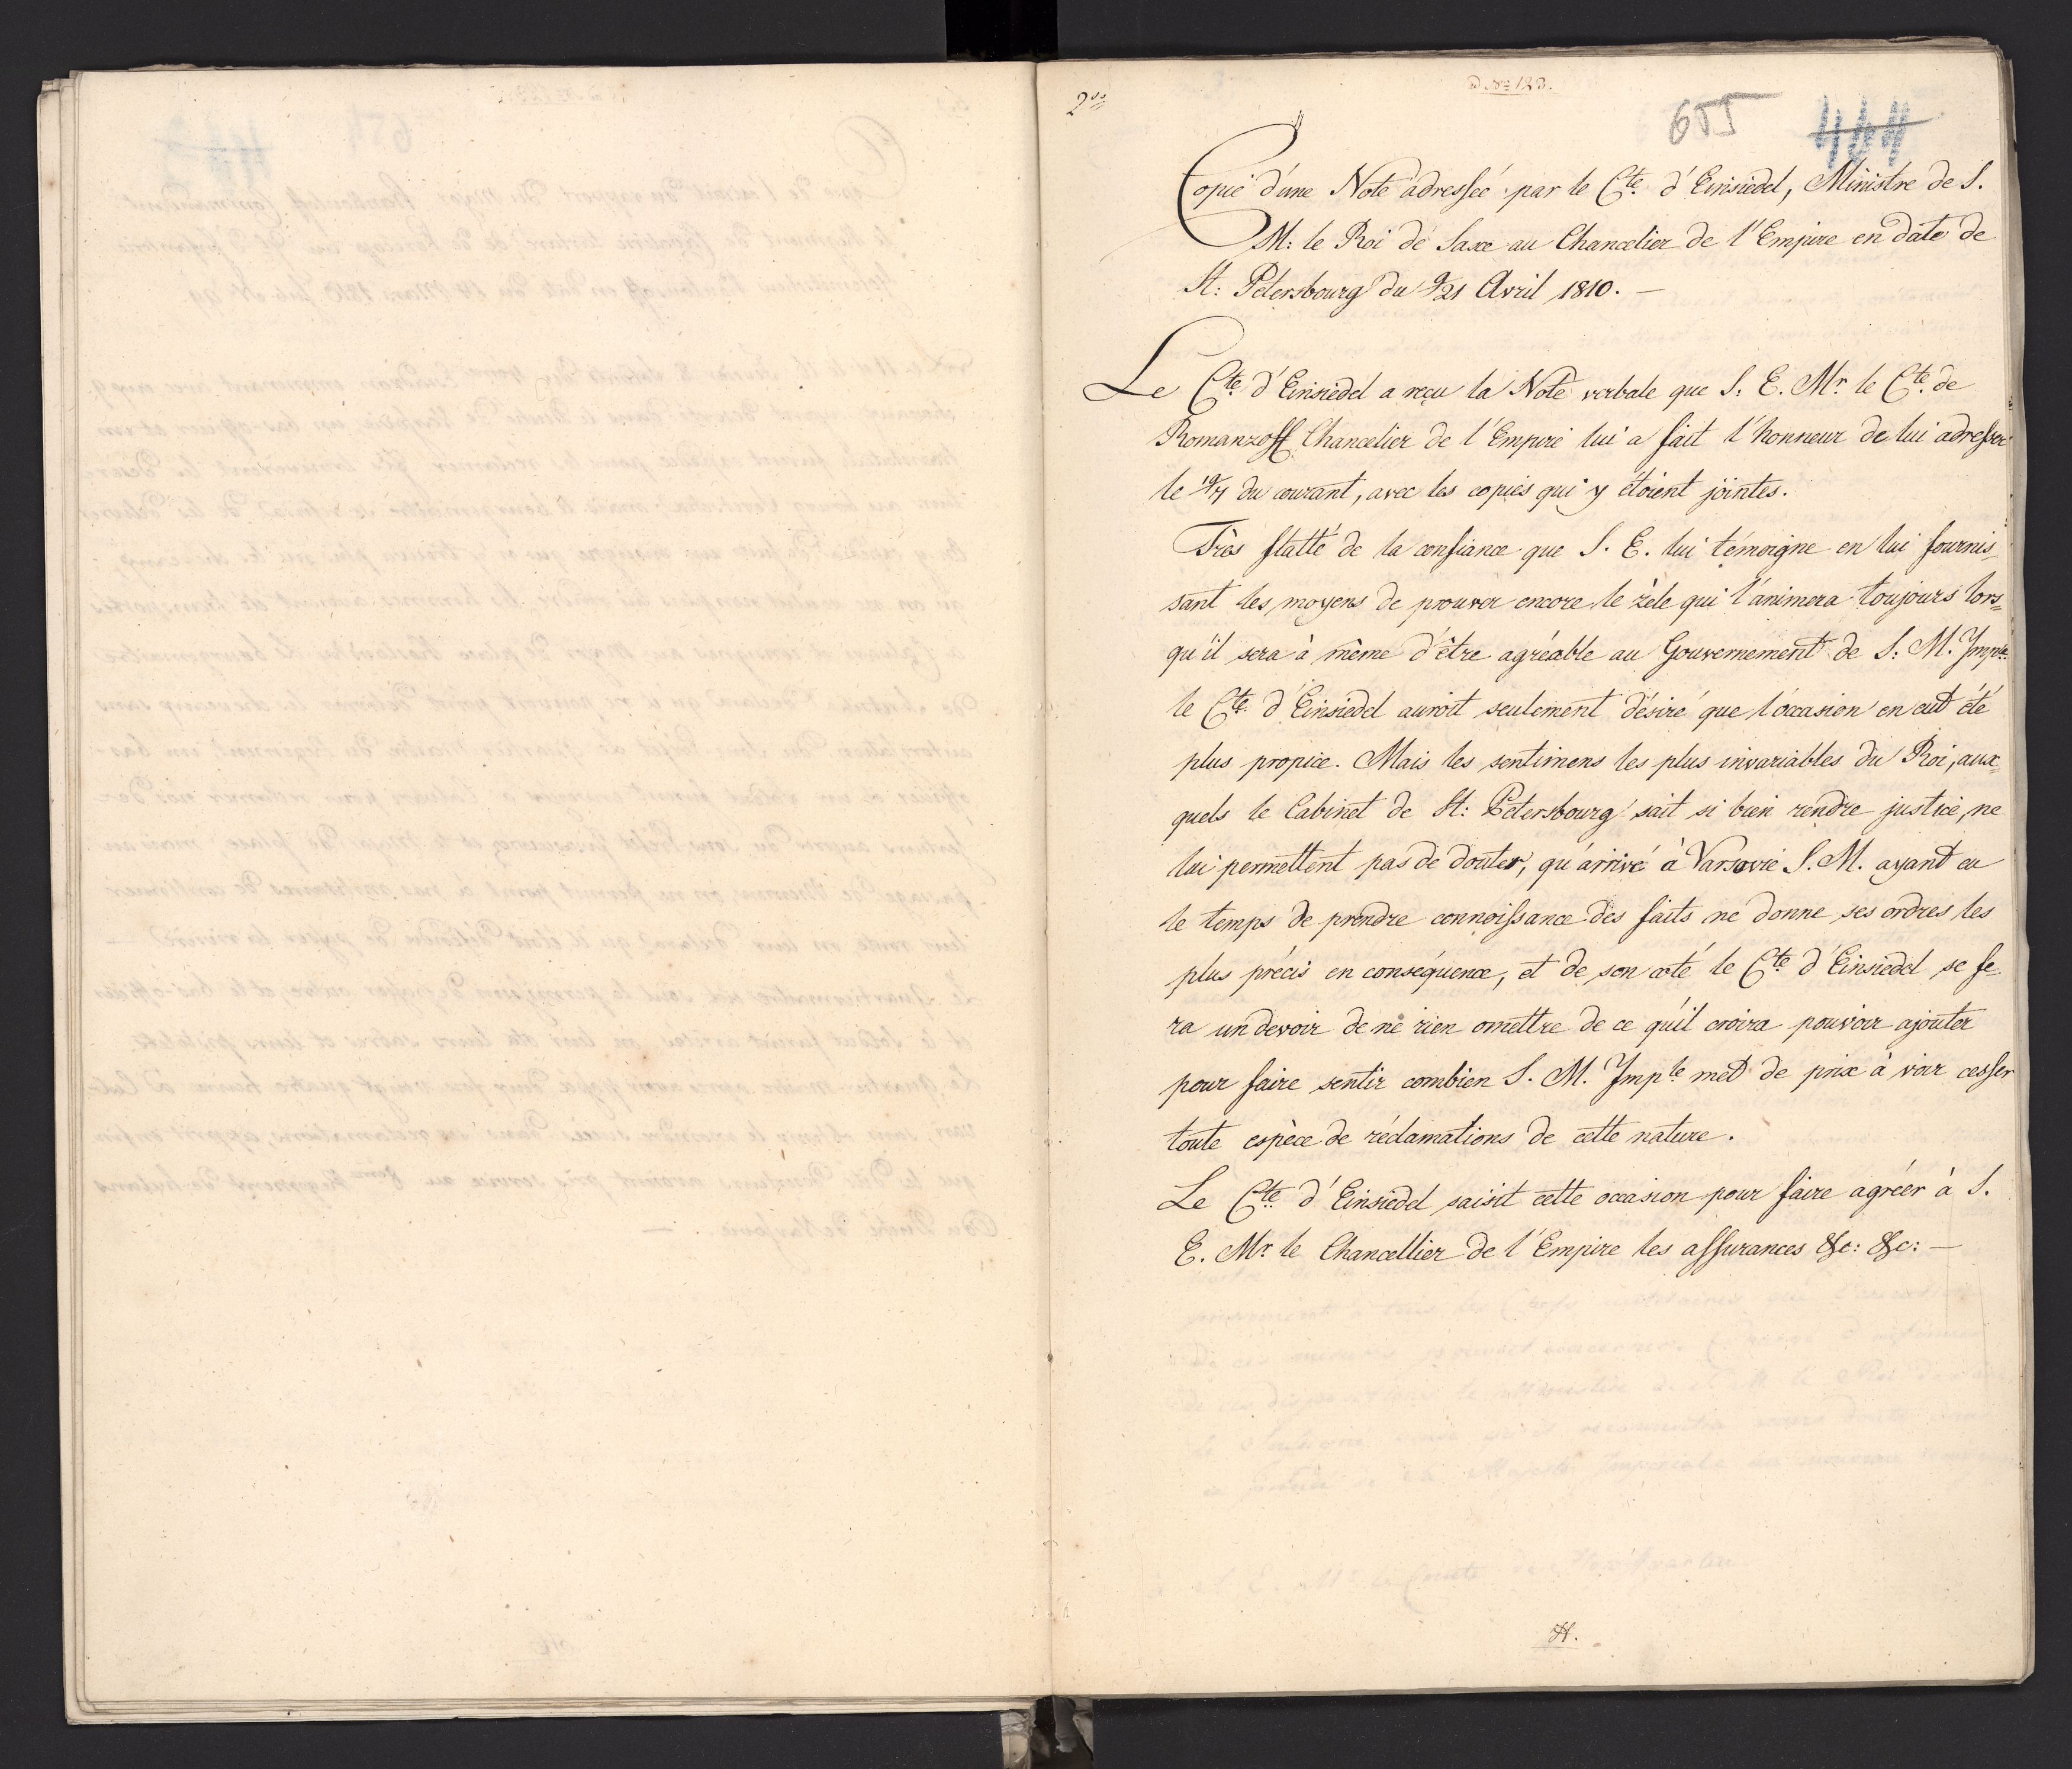 2do
D. No 123.
655 444
Copie d'une Note adressée par le Cte d'Einsiedel, Ministre de S.
M: le Roi de Saxe au Chancelier de l'Empire en date de
St: Pétersbourg du 9/21 Avril 1810. —
Le Cte d'Einsiedel a reçu la Note verbale que S. E. Mr. le Cte de
Romanzoff Chancelier de l'Empire lui a fait l'honneur de lui adresser
le 19/7 du courant, avec les copies qui y étoient jointes.
Très flatté de la confiance que S. E. lui témoigne en lui fournis-
sant les moyens de prouver encore le zèle qui l'animera toujours lors=
qu'il sera à même d'être agréable au Gouvernement de S. M. Imple
le Cte d'Einsiedel auroit seulement désiré que l'occasion en eut été
plus propice. Mais les sentimens les plus invariables du Roi, aux=
quels le Cabinet de St: Pétersbourg sait si bien rendre justice, ne
lui permettent pas de douter, qu'arrivé à Varsovie S. M. ayant eu
le temps de prendre connoissance des faits ne donne ses ordres les
plus précis en conséquence, et de son coté le Cte d'Einsiedel se fe-
ra un devoir de ne rien omettre de ce qu'il croira pouvoir ajouter
pour faire sentir combien S. M. Imple met de prix à voir cesser
toute espèce de réclamations de cette nature.
Le Cte d'Einsiedel saisit cette occasion pour faire agréer à S.
E. Mr. le Chancellier de l'Empire les assurances &c: &c: —
H.